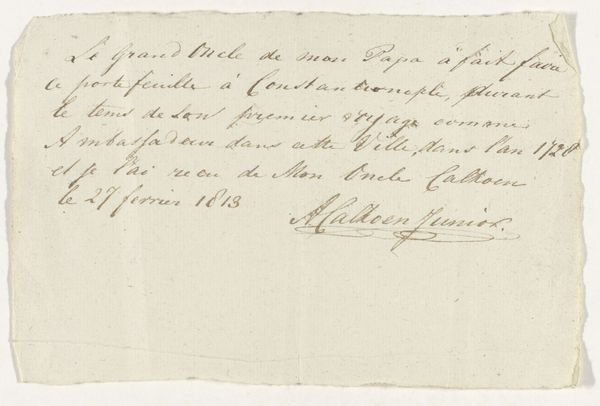 Le grand Oncle de mon Papa à fait faire
ce portefeuille à Constantinople, durant
le tems de son premier voyage comme
Ambassadeur dans cette Ville, dans l'an 1726
et je l'ai recu de Mon Oncle Calkoen
le 27 fevrier 1813
A Calkoen Junior.